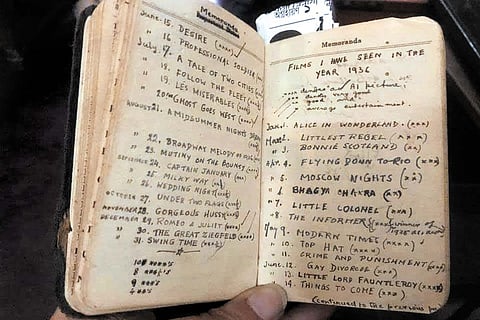 Memoranda
June. 15. DESIRE (xxxx)
" 16 PROFESSIONAL SOLDIER
July. 17. A TALE OF TWO CITIES
" 18. FOLLOW THE FLEET
" 19. LES MISERABLES
20. GHOST GOES WEST
August 21. A MIDSUMMER NIGHTS DREAM
" 22. BROADWAY MELODY
" 23. MUTINY ON THE BOUNTY
SEPTEMBER 24. CAPTAIN JANUARY
" 25. MILKY WAY
" 26. WEDDING NIGHT
OCTOBER 27. UNDER TWO FLAGS
NOVEMBER 28. GORGEOUS HUSSY
DECEMBER 29. ROMEO & JULIET
" 30. THE GREAT ZIEGFELD
" 31. SWING TIME (xxx)
Memoranda
FILMS I HAVE SEEN IN THE
YEAR 1936
denotes an A1 picture,
" denotes very good
" good
" average entertainment.
Jan. 1. ALICE IN WONDERLAND. (xxx)
2. LITTLEST REBEL (xxx)
" 3. BONNIE SCOTLAND (xx)
4. FLYING DOWN TO RIO (xxx)
" 5. MOSCOW NIGHTS (xx)
6. BHAGYA CHAKRA (xx)
" 7. LITTLE COLONEL (xx)
8. THE INFORMER
May 9. MODERN TIMES (xxxx)
" 10. TOP HAT (xxxx)
" 11. CRIME AND PUNISHMENT
June. 12. GAY DIVORCE (xxx)
" 13. LITTLE LORD FAUNTLEROY (xxxx)
" 14. THINGS TO COME (xxx)
(continued in the previous